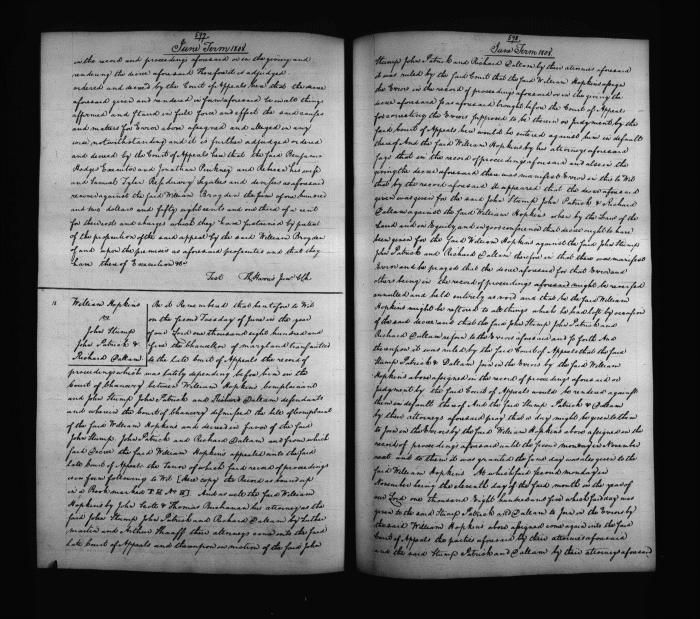 597
June Term 1808
in the record and proceedings aforesaid or in the giving and
rendering the decree aforesaid Therefore it is adjudged
ordered and decreed by the Court of Appeals here that the decree
aforesaid given and rendered in form aforesaid be in all things
affirmed and stand in full force and effect the said causes
and matters for Error above assigned and alleged in any
wise notwithstanding and it is further adjudged ordered
and decreed by the Court of Appeals here that the said Benjamin
Hodges Executor and Jonathan Pinkney and Rebecca his wife
and Samuel Tyler Residuary Legatee and devisee as aforesaid
recover against the said William Brogden the sum of one hundred
and two dollars and fifty eight cents and one third of a cent
for their costs and charges which they have sustained by
of the prosecution of the said appeal by the said William Brogden
of and upon the premises as aforesaid prosecuted and that they
have thereof Execution &c
Test Th Harris Junr Clk
William Hopkins
vs
John Stump
John Patrick &
Richard Dallam
Be it Remembered that heretofore to Wit
on the second Tuesday of June in the year
of our Lord one thousand eight hundred and
five the Chancellor of Maryland transmitted
to the late Court of Appeals the record of
proceedings which was lately depending before him in the
Court of Chancery between William Hopkins Complainant
and John Stump John Patrick and Richard Dallam defendants
and wherein the Court of Chancery dismissed the bill of Complaint
of the said William Hopkins and decreed in favor of the said
John Stump John Patrick and Richard Dallam and from which
said Decree the said William Hopkins appealed unto the said
Late Court of Appeals the Tenor of which said record of proceedings
is in form following to Wit (Here copy the Record as bound up
in a Book marked And as well the said William
Hopkins by John Leeds & Thomas Buchanan his attorney as the
said John Stump John Patrick and Richard Dallam by Luther
Martin and Arthur Shaaff their attorneys came into the said
Late Court of Appeals and thereupon on motion of the said John
598
June Term 1808
Stump John Patrick and Richard Dallam by their attornies aforesaid
it was ruled by the said Court that the said William Hopkins assign
the Errors in the record of proceedings aforesaid or in the giving the
decree aforesaid or as aforesaid brought before the Court of Appeals
for correcting the Errors supposed to be therein or Judgment by the
said Court of Appeals here would be entered against him in default
thereof And the said William Hopkins by his attorneys aforesaid
says that in the record of proceedings aforesaid and also in the
giving the decree aforesaid there was manifest Error in this to Wit
that by the record aforesaid it appeared that the decree aforesaid
given was given for the said John Stump John Patrick & Richard
Dallam against the said William Hopkins when by the Laws of the
Land and in Equity and in good conscience that decree ought to have
been given for the said William Hopkins against the said John Stump
John Patrick and Richard Dallam therefore in that there was manifest
Error and he prayed that the decree aforesaid for that Error and
others being in the record of proceedings aforesaid might be reversed
annulled and held entirely as void and that he the said William
Hopkins might be restored to all things which he had lost by occasion
of the said decree and that the said John Stump John Patrick and
Richard Dallam rejoin to the Errors aforesaid and so forth And
thereupon it was ruled by the said Court of Appeals that the said
Stump Patrick & Dallam Join in the Errors by the said William
Hopkins above assigned in the record of proceedings aforesaid or
Judgment by the said Court of Appeals would be rendered against
them in default thereof And the said Stump Patrick & Dallam
by their attorneys aforesaid pray that a day might be given to them
to Join in the Errors by the said William Hopkins above assigned in the
record of proceedings aforesaid until the second monday in November
next and to them it was granted the same day was also given to the
said William Hopkins At which said second monday in
November being the eleventh day of the said month in the year of
our Lord one thousand Eight hundred and five which said day was
given to the said Stump Patrick and Dallam to Join in the Errors by
the said William Hopkins above assigned came again into the said
Court of Appeals the parties aforesaid by their attornies aforesaid
and the said Stump Patrick and Dallam by their attorneys aforesaid